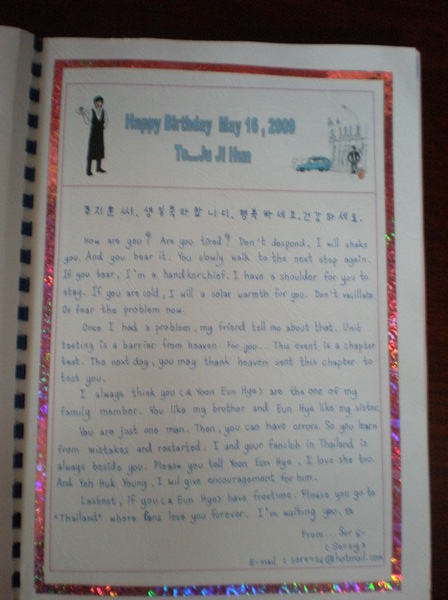 Happy Birthday May 16, 2009
To....Ju Ji Hun
주지훈 씨. 생일축하합니다. 행복하세요. 건강하세요.
How are you? Are you tired? Don't despond. I will shake
you. And you bear it. You slowly walk to the next step again.
If you tear, I'm a handkerchief. I have a shoulder for you to
stay. If you are cold, I will a solar warmth for you. Don't vacillate
Or fear the problem now.
Once I had a problem, my friend tell me about that. Unit
testing is a barrier from heaven. For you... This event is a chapter
test. The next day, you may thank heaven sent this chapter to
test you.
I always think you (& Yoon Eun Hye) are the one of my
family member. You like my brother and Eun Hye like my sister.
You are just one man. Then, you can have errors. So you learn
from mistakes and restarted. I and your fanclub in Thailand is
always beside you. Please you tell Yoon Eun Hye, I love she too.
And Yeh Huk Young, I wil give encouragement for him.
Lastnet, if you (& Eun Hye) have freetime. Please you go to
"Thailand" where fans love you forever. I'm waiting you.
From...
E-mail : @hotmail.com